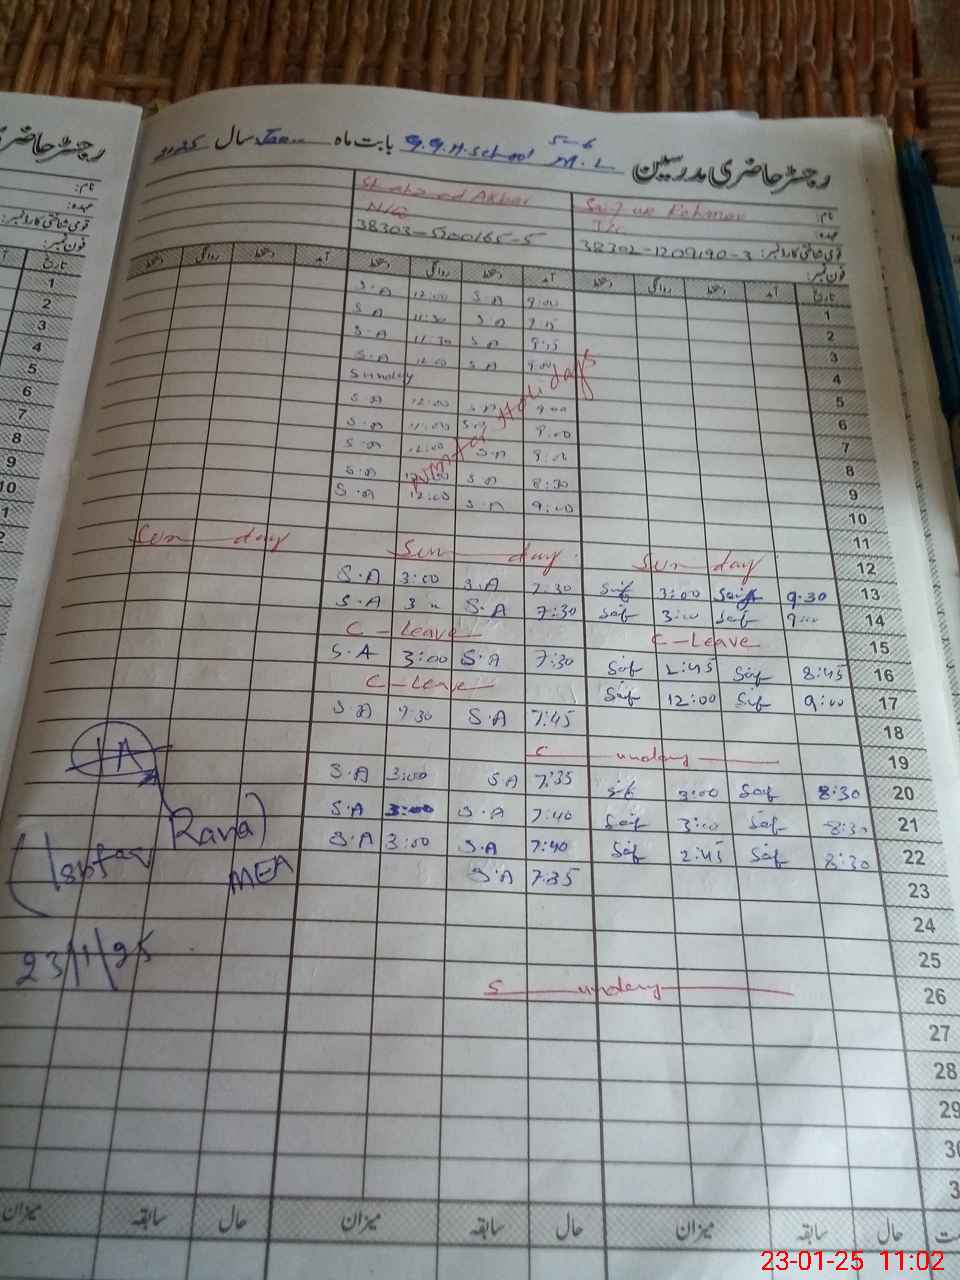 رجسٹر حاضری مدرسین G.G.H.School M.L 5-6 بابت ماہ Jan سال 2025
رجسٹر حاضری
نام:
عہدہ:
قومی شناختی کارڈ نمبر:
فون نمبر:
نام: Saif ur Rehman Shahzad Akbar
عہدہ: N/Q
قومی شناختی کارڈ نمبر: 38302-1209190-3 38303-5200165-5
فون نمبر:
تاریخ آمد دستخط روانگی دستخط آمد دستخط روانگی دستخط آمد دستخط روانگی دستخط
1 9:00 S.A 12:00 S.A
2 S.A 11:30 S.A
3 S.A 11:30 S.A
4 9:00 S.A 12:00 S.A
5 Sunday
6 9:00 S.A 12:00 S.A
7 9:00 S.A
8 9:00 S.A 12:00 S.A
9 8:30 S.A S.A
10 9:00 S.A 12:00 S.A
Holidays
11
12 Sun day Sun day Sun day
13 9:30 Saif 3:00 Saif 7:30 S.A 3:00 S.A
14 9:00 Saif 3:00 Saif 7:30 S.A 3 S.A
15 C-Leave C-Leave
16 8:45 Saif 2:45 Saif 7:30 S.A 3:00 S.A
17 9:00 Saif 12:00 Saif C-Leave
18 7:45 S.A 9:30 S.A
19 Sunday
20 8:30 Saif 3:00 Saif 7:35 S.A 3:00 S.A
21 8:30 Saif 3:00 Saif 7:40 S.A 3:00 S.A
22 8:30 Saif 2:45 Saif 7:40 S.A 3:00 S.A
23 7:35 S.A
24
25
26 Sunday
27
28
29
30
3
Rana)
MEA
23/1/25
حال سابقہ میزان حال سابقہ میزان حال سابقہ میزان
23-01-25 11:02